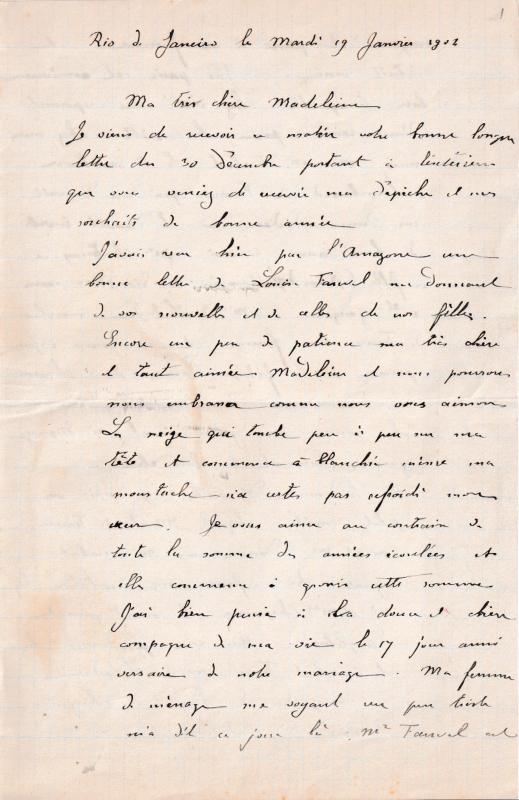 1
Rio de Janeiro le Mardi 19 Janvier 1902
Ma très chère Madeleine
Je viens de recevoir ce matin votre bonne longue
lettre du 30 Décembre portant à l'extérieur
que vous veniez de recevoir ma dépêche et mes
souhaits de bonne année
J'avais reçu hier par l'Amazone une
bonne lettre de Louise me donnant
de vos nouvelles et de celles de nos filles.
Encore un peu de patience ma très chère
et tout aimée Madeleine et nous pourrons
nous embrasser comme nous nous aimons
La neige qui tombe peu à peu sur ma
tête et commence à blanchir même ma
moustache n'a certes pas refroidi mon
cœur. Je vous aime au contraire de
toute la somme des années écoulées et
elles commencent à grossir cette somme
J'ai bien pensé à la douce et chère
compagne de ma vie le 17 jour anni
versaire de notre mariage. Ma femme
de ménage me voyant un peu triste
m'a dit ce jour là Mr est